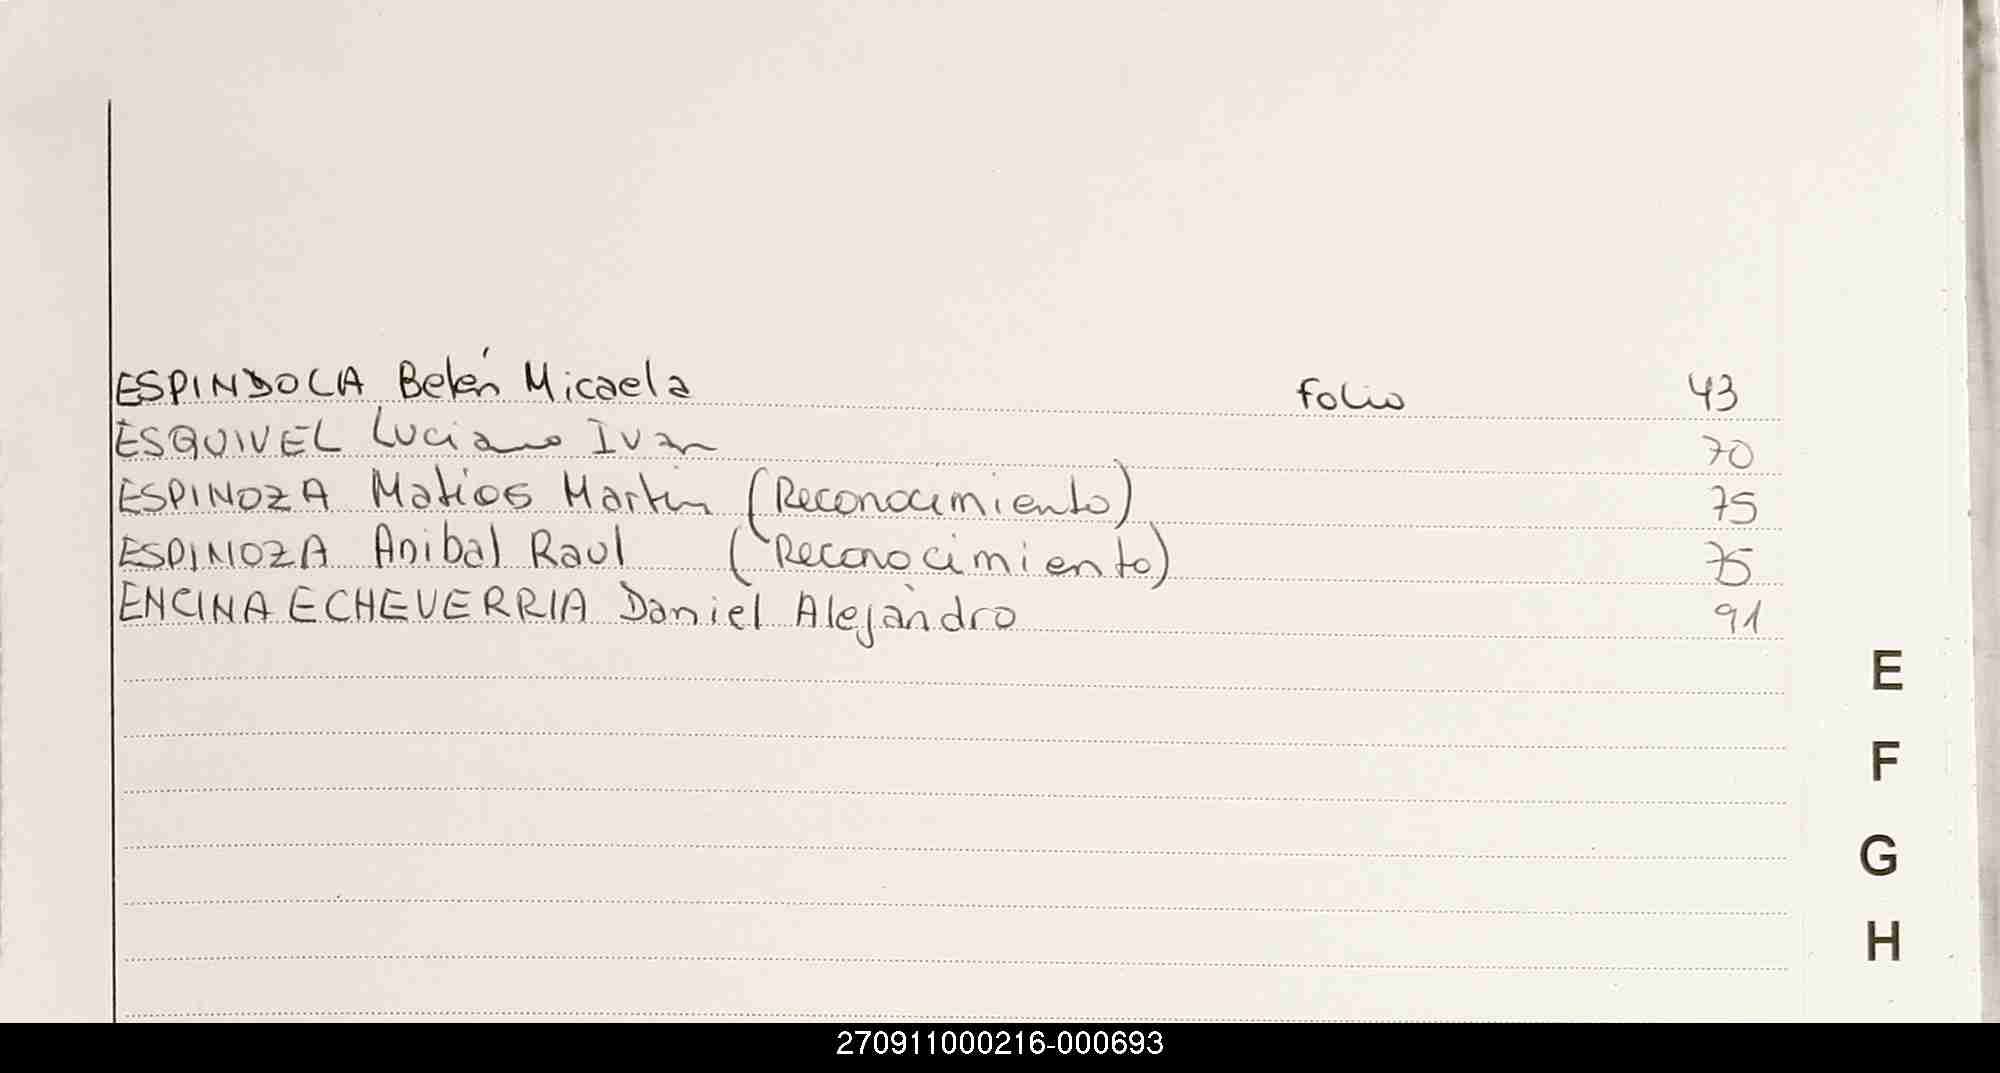 ESPINDOLA Belén Micaela folio 43
ESQUIVEL Luciano Ivan 70
ESPINOZA Matias Martin (Reconocimiento) 75
ESPINOZA Anibal Raul (Reconocimiento) 75
ENCINA ECHEVERRIA Daniel Alejandro 91
E
F
G
H
270911000216-000693